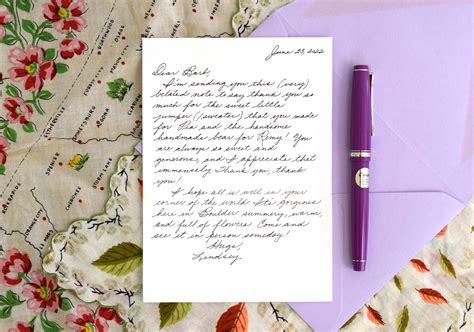 June 23, 2022
Dear Barb,
I'm sending you this (very)
belated note to say thank you so
much for the sweet little
jumper (/sweater) that you made
for Pia and the handsome
handmade bear for Remy! You
are always so sweet and
generous, and I appreciate that
immensely. Thank you, thank
you!
I hope all is well in your
corner of the world. It's gorgeous
here in Boulder summery, warm,
and full of flowers. Come and
see it in person someday!
Hugs,
Lindsey